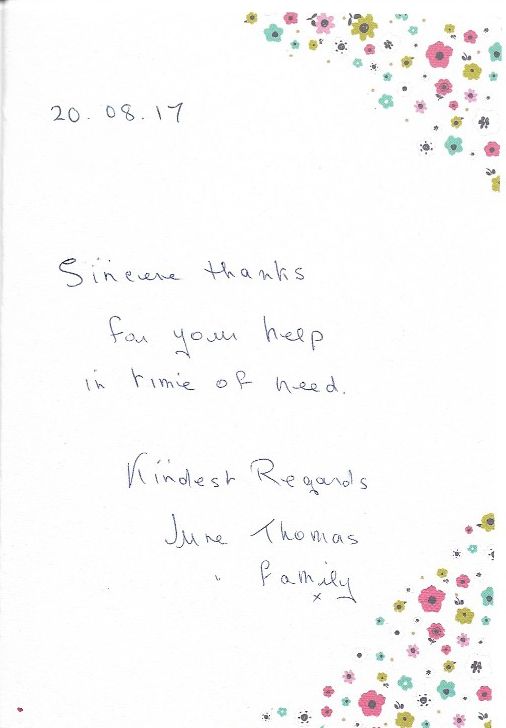 20.08.17
Sincere thanks
for your help
in time of need.
Kindest Regards
June Thomas
" family
x